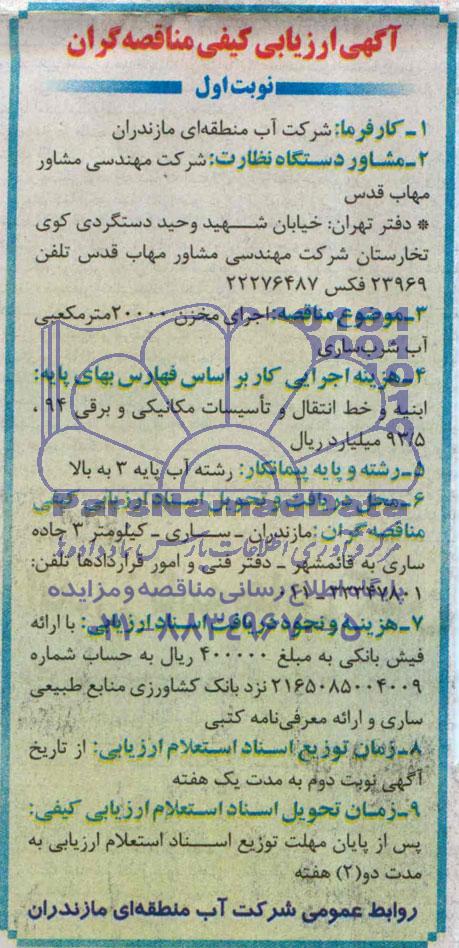 آگهی ارزیابی کیفی مناقصه گران
نوبت اول
۱ـ کارفرما: شرکت آب منطقه‌ای مازندران
۲ـ مشاور دستگاه نظارت: شرکت مهندسی مشاور
مهاب قدس
* دفتر تهران: خیابان شهید وحید دستگردی کوی
تخارستان شرکت مهندسی مشاور مهاب قدس تلفن
۲۳۹۶۹ فکس ۲۲۲۷۶۴۸۷
۳ـ موضوع مناقصه: اجرای مخزن ۲۰۰۰۰ مترمکعبی
آب شرب ساری
۴ـ هزینه اجرایی کار بر اساس فهارس بهای پایه:
ابنیه و خط انتقال و تأسیسات مکانیکی و برقی ۹۴ ،
۹۳/۵ میلیارد ریال
۵ـ رشته و پایه پیمانکار: رشته آب پایه ۳ به بالا
۶ـ محل دریافت و تحویل اسناد ارزیابی کیفی
مناقصه گران: مازندران ـ ساری ـ کیلومتر ۳ جاده
ساری به قائمشهر ـ دفتر فنی و امور قراردادها تلفن:
۷ـ هزینه و نحوه دریافت اسناد ارزیابی: با ارائه
فیش بانکی به مبلغ ۴۰۰۰۰۰ ریال به حساب شماره
۲۱۶۵۰۸۵۰۰۴۰۰۹ نزد بانک کشاورزی منابع طبیعی
ساری و ارائه معرفی‌نامه کتبی
۸ـ زمان توزیع اسناد استعلام ارزیابی: از تاریخ
آگهی نوبت دوم به مدت یک هفته
۹ـ زمان تحویل اسناد استعلام ارزیابی کیفی:
پس از پایان مهلت توزیع اسناد استعلام ارزیابی به
مدت دو(۲) هفته
روابط عمومی شرکت آب منطقه‌ای مازندران
ParsNamadData
مرکز فرآوری اطلاعات پارس نماد داده‌ها
پایگاه اطلاع رسانی مناقصه و مزایده
۰۲۱-۸۸۳۴۹۶۷۰-۵